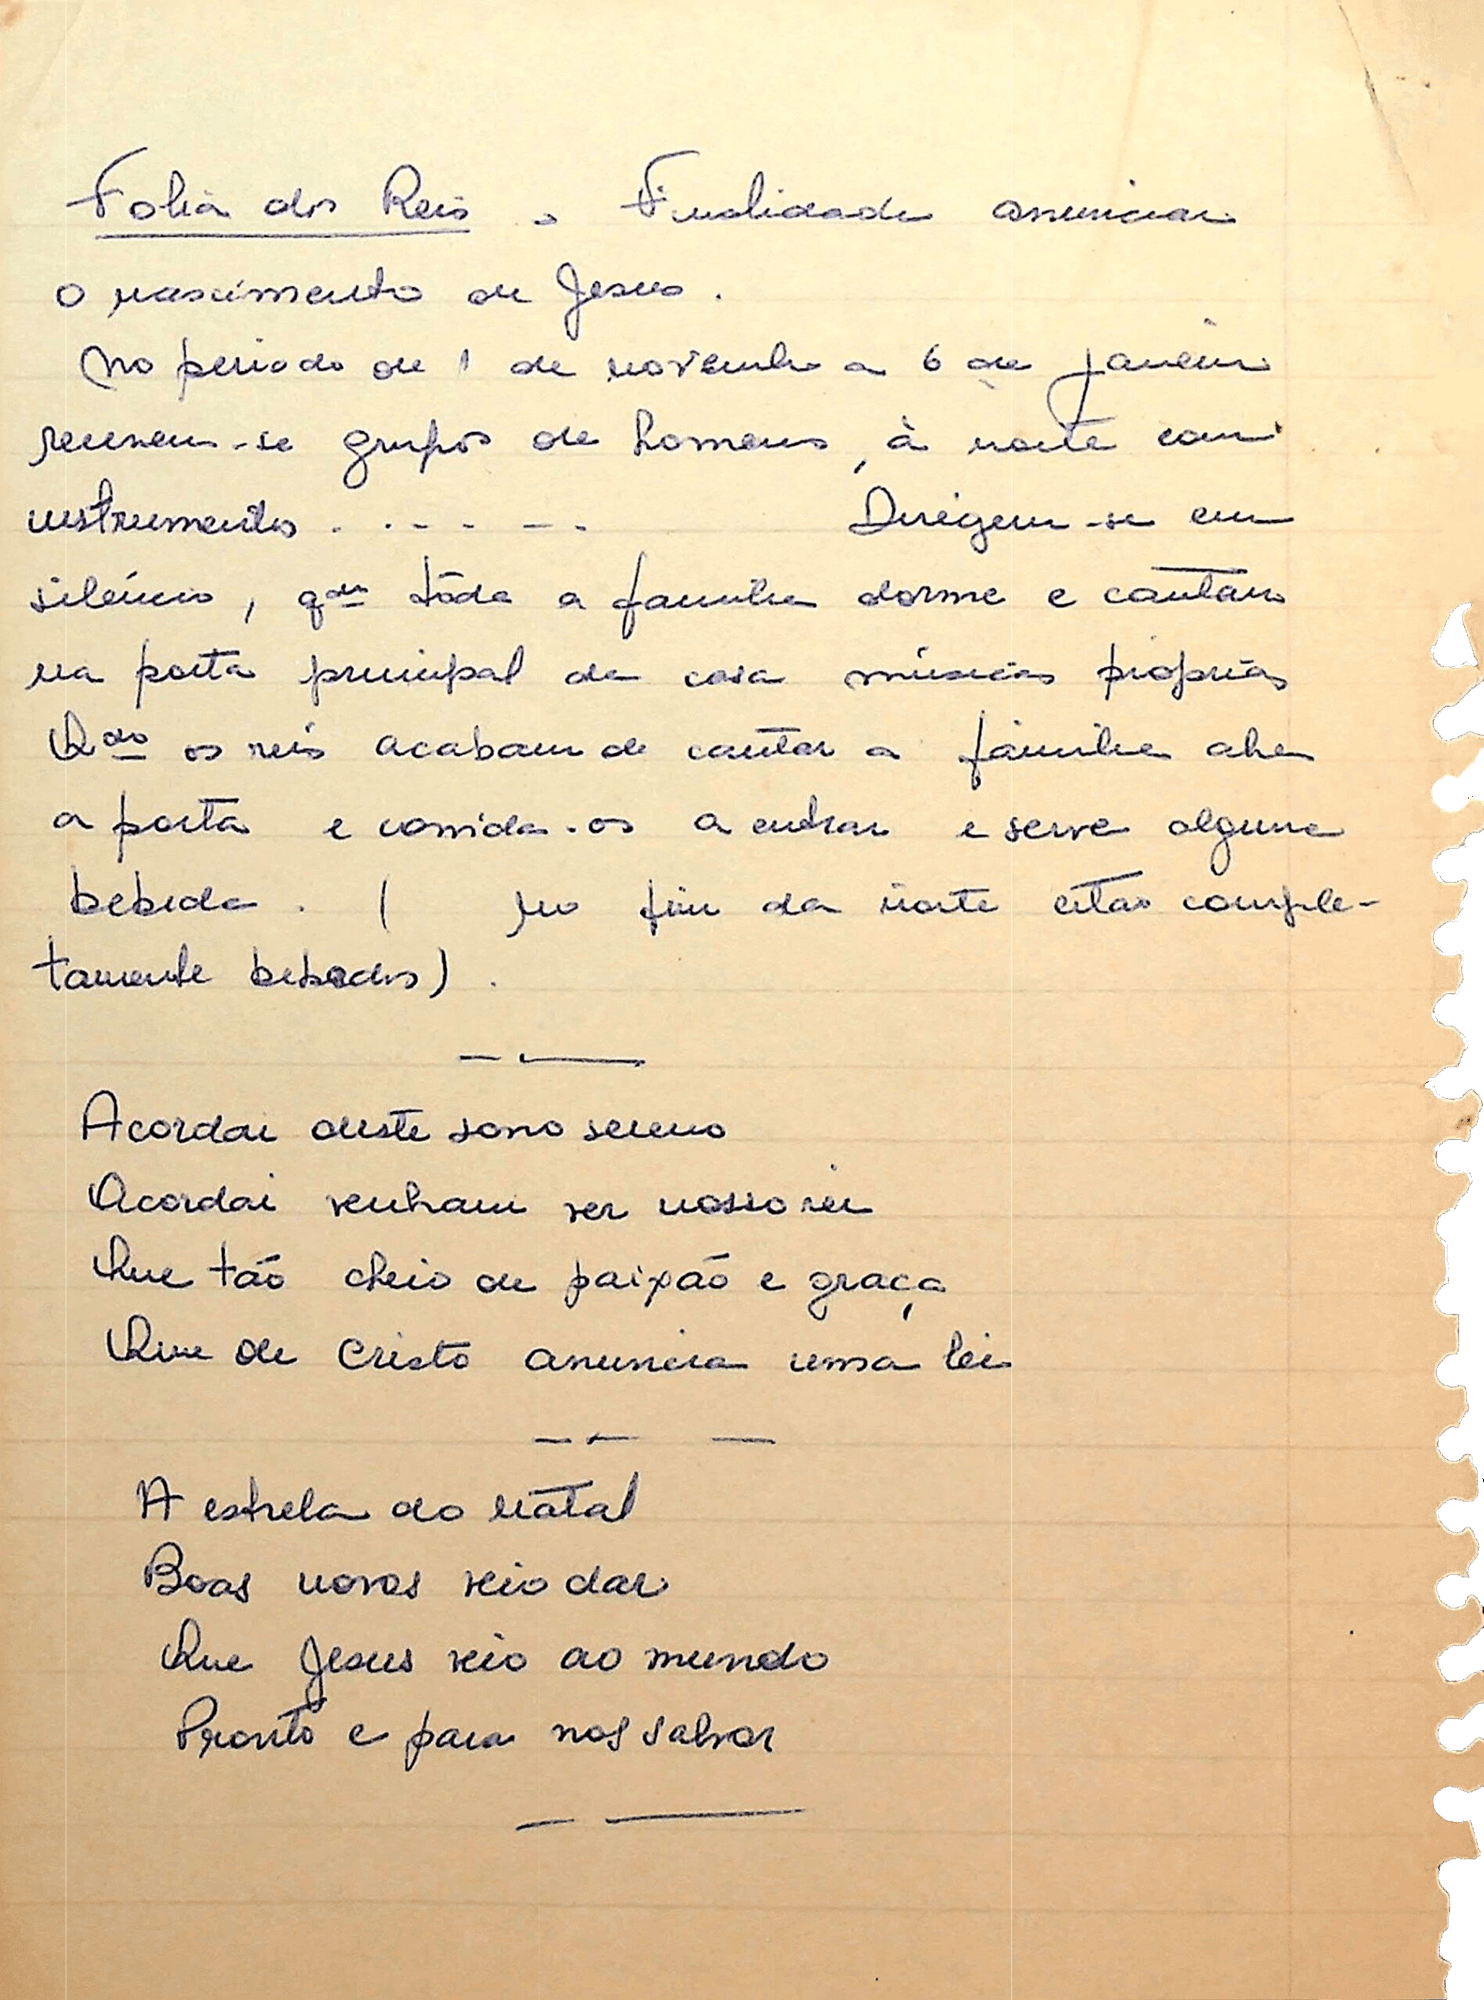 Folia dos Reis - Finalidade anunciar
o nascimento de Jesus.
No periodo de 1 de novembro a 6 de janeiro
reunem-se grupos de homens, à noite com
instrumentos . . - - - - . Dirigem-se em
silêncio, qdo tôda a familia dorme e cantam
na porta principal da casa músicas próprias
Qdo os reis acabam de cantar a familia abre
a porta e convida-os a entrar e serve alguma
bebida. ( No fim da noite estão comple-
tamente bebados).
Acordai deste sono sereno
Acordai venham ver nosso rei
Que tão cheio de paixão e graça
Que de Cristo anuncia uma lei
A estrela do Natal
Boas novas veio dar
Que Jesus veio ao mundo
Pronto e para nos salvar